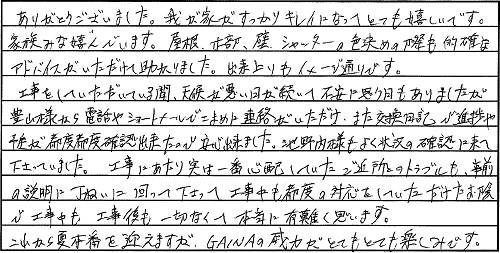 ありがとうございました。我が家がすっかりキレイになってとても嬉しいです。
家族みな喜んでいます。屋根、木部、壁、シャッターの色決めの際も的確な
アドバイスがいただけて助かりました。出来上りもイメージ通りです。
工事をしていただいている間、天候が悪い日が続いて不安に思う日もありましたが
豊山様から電話やショートメールでこまめに連絡がいただけ、また交換日記で進捗や
予定が都度都度確認出来たので安心出来ました。池野内様もよく状況の確認に来て
下さっていました。工事にあたり実は一番心配していたご近所とのトラブルも、事前
の説明に丁ねいに回って下さって工事中も都度の対応をしていただけたお陰
で工事中も工事後も一切なくて本当に有難く思います。
これから夏本番を迎えますが、GAINAの威力がとてもとても楽しみです。